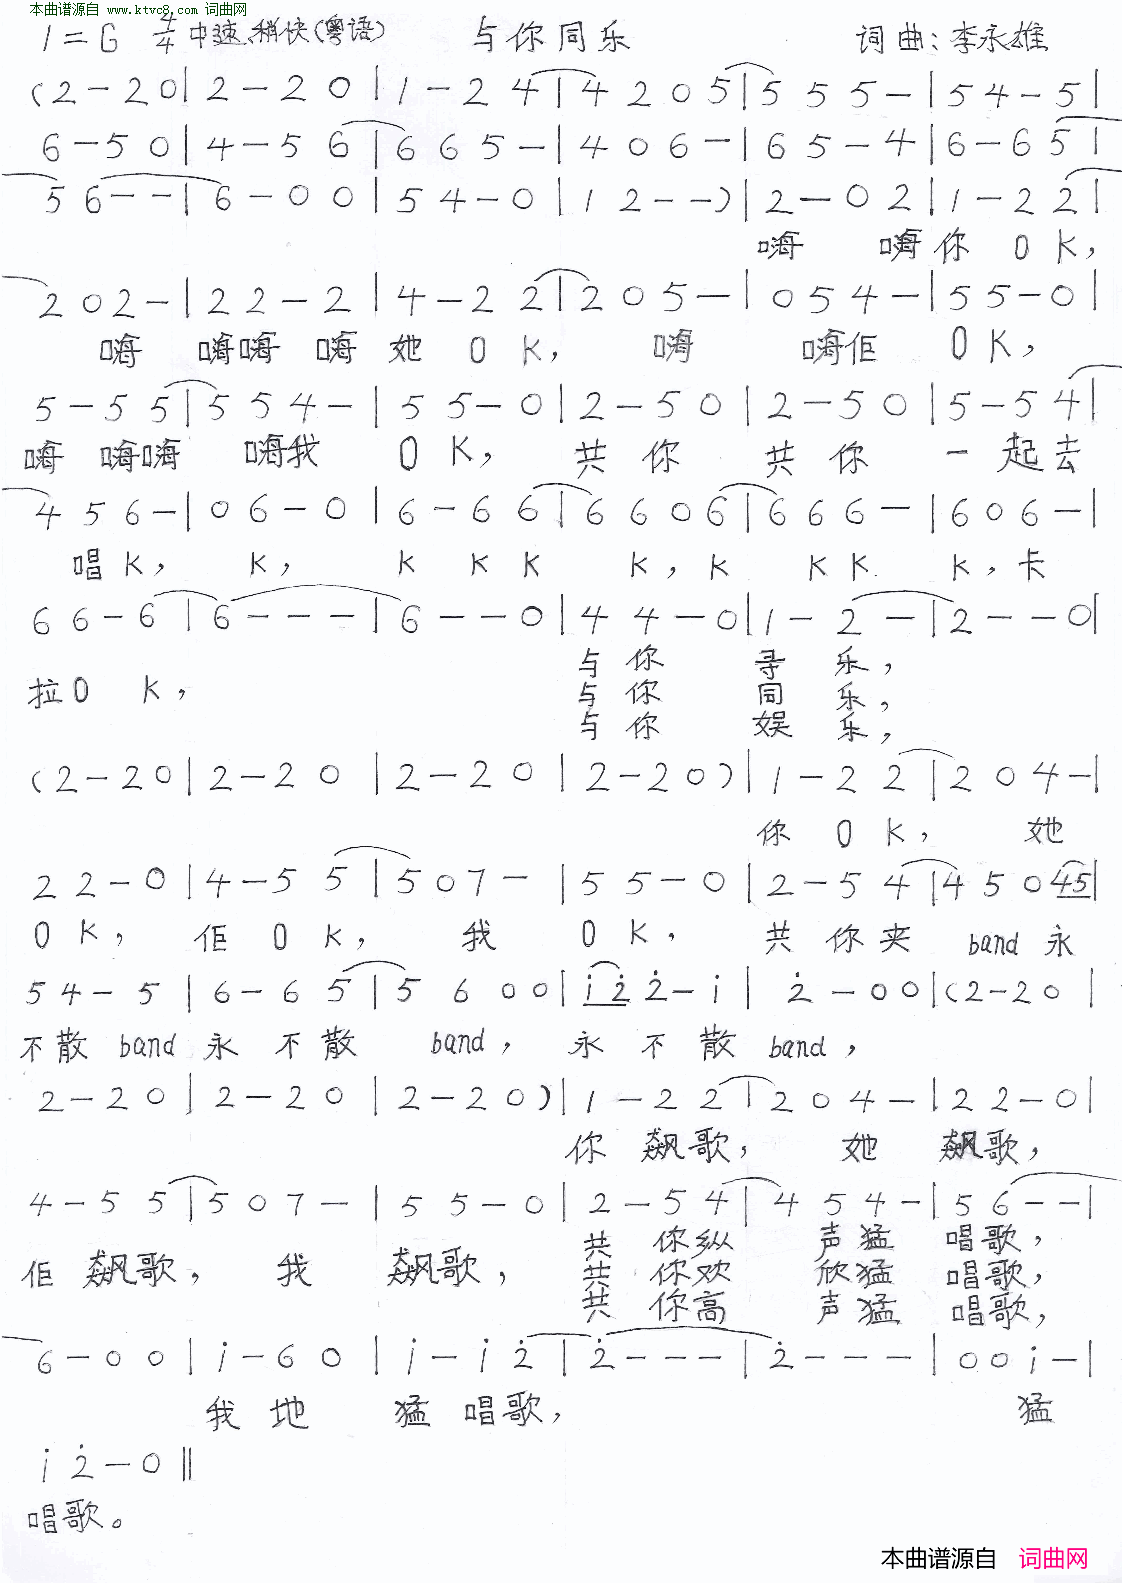 本曲谱源自 www.ktvc8.com 词曲网
1=G 4/4 中速、稍快(粤语) 与你同乐 词曲:李永雄
(2-20|2-20|1-24|4205|555-|54-5|
6-50|4-56|665-|406-|65-4|6-65|
56--|6-00|54-0|12--)|2-02|1-22|
嗨 嗨你 O K,
202-|22-2|4-22|205-|054-|55-0|
嗨 嗨嗨 嗨 她 O K, 嗨 嗨佢 O K,
5-55|554-|55-0|2-50|2-50|5-54|
嗨 嗨嗨 嗨我 O K, 共 你 共 你 一起去
456-|06-0|6-66|6606|666-|606-|
唱K, K, K K K K, K K K K, 卡
66-6|6---|6--0|44-0|1-2-|2--0|
拉O K, 与你 寻 乐,
与你 同 乐,
与你 娱 乐,
(2-20|2-20|2-20|2-20)|1-22|204-|
你 O K, 她
22-0|4-55|507-|55-0|2-54|45045|
O K, 佢 O K, 我 O K, 共 你夹 band 永
54-5|6-65|5600|i̇2̇2̇-i̇|2̇-00|(2-20|
不散 band 永 不 散 band, 永 不 散 band,
2-20|2-20|2-20)|1-22|204-|22-0|
你 飙歌, 她 飙歌,
4-55|507-|55-0|2-54|454-|56--|
佢 飙歌, 我 飙歌, 共 你纵 声猛 唱歌,
共 你欢 欣猛 唱歌,
共 你高 声猛 唱歌,
6-00|i̇-60|i̇-i̇2̇|2̇---|2̇---|00i̇-|
我 地 猛 唱歌, 猛
i̇2̇-0‖
唱歌。
本曲谱源自 词曲网